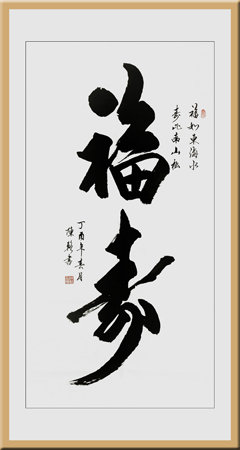 福寿
福如東海水
寿比南山松
丁酉年春月
陳彩書